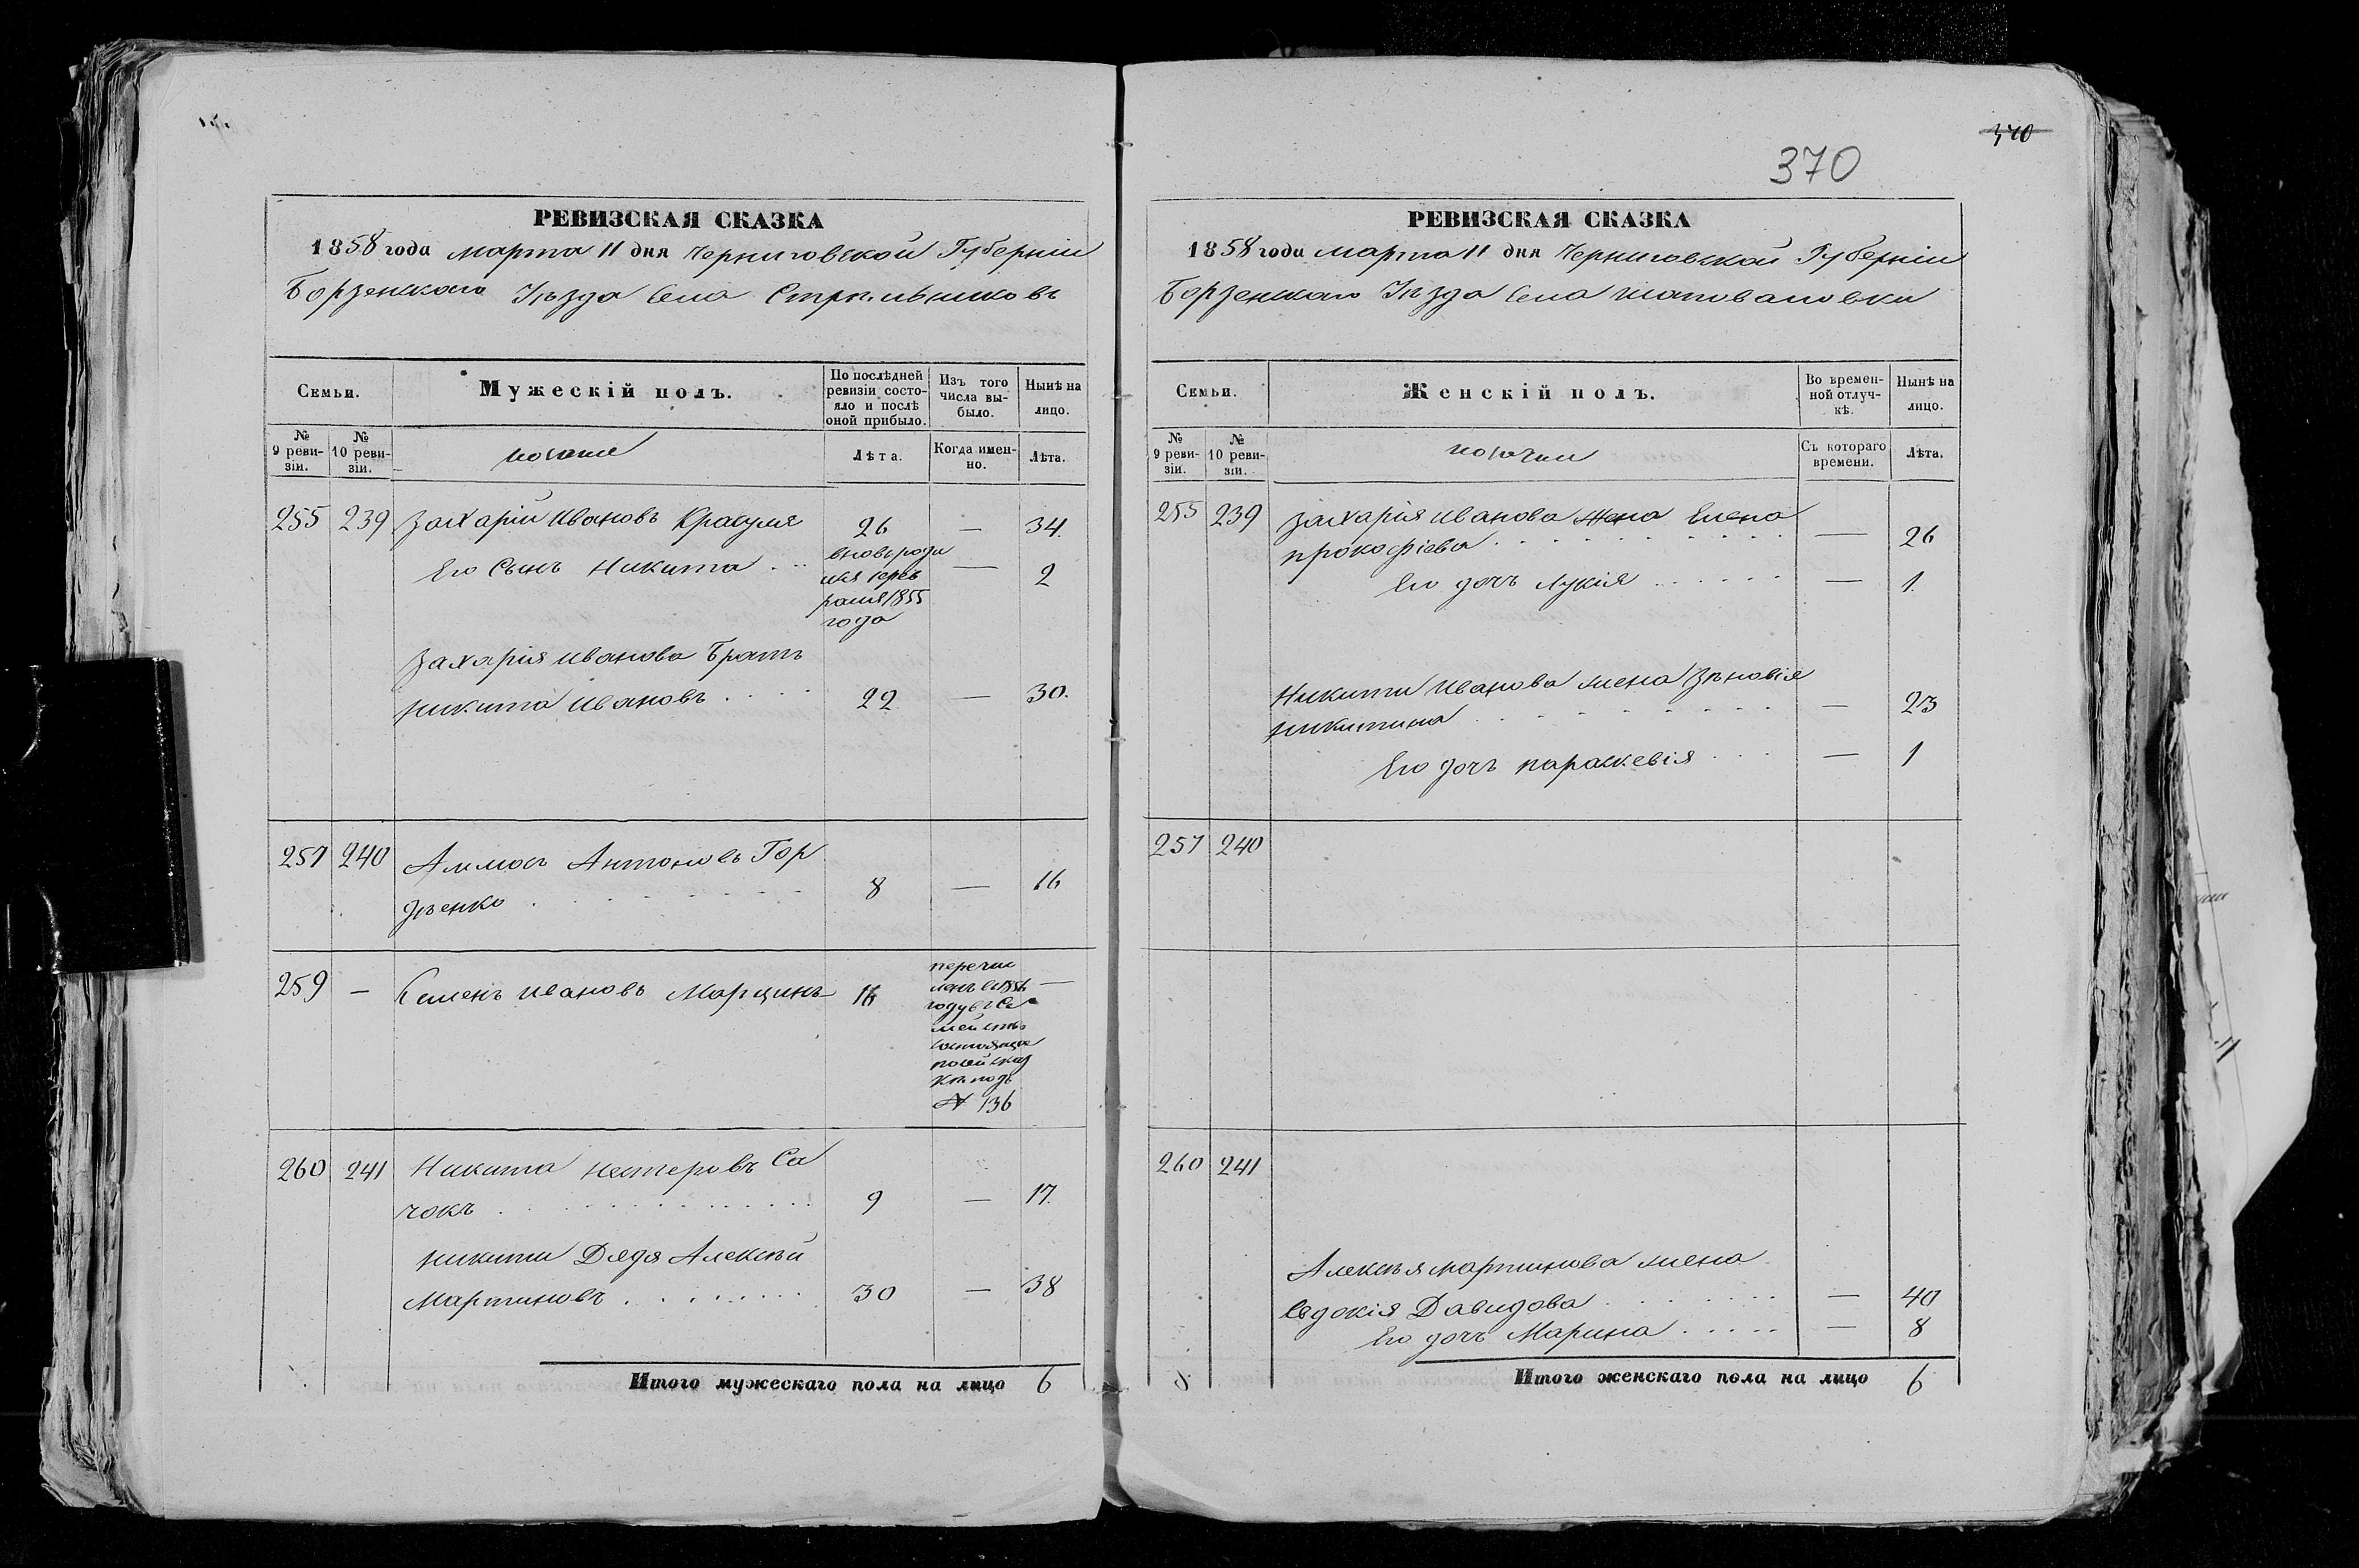 370
370
РЕВИЗСКАЯ СКАЗКА
1858 года марта 11 дня Черниговской Губерніи
Борзенскаго Уѣзда Села Стрѣльниковъ
Семьи.
Мужескій полъ.
По послѣдней ревизіи состояло и послѣ оной прибыло.
Изъ того числа выбыло.
Нынѣ на лицо.
№ 9 ревизіи.
№ 10 ревизіи.
Лѣта.
Когда именно.
Лѣта.
255 239 Захарій Ивановъ 26 — 34.
Его Сынъ Никита . . вновь роди — 2
1855
года
Захарія Иванова Братъ
Никита Ивановъ . . . . 22 — 30.
257 240 Антоновъ Гор
дѣенко . . . . . . . 8 — 16
259 — Семенъ Ивановъ Марцинъ 16 —
перечис
ленъ въ 1856
году въ Се
мейство
состоящее
по сей сказ
кѣ подъ
№ 136
260 241 Никита Нестеровъ Са
чокъ . . . . . . . . 9 — 17.
Никиты Дядя Алексѣй
Мартиновъ . . . . . . . 30 — 38
Итого мужескаго пола на лицо 6
РЕВИЗСКАЯ СКАЗКА
1858 года марта 11 дня Черниговской Губерніи
Борзенскаго Уѣзда Села Шаповаловки
Семьи.
Женскій полъ.
Во временной отлучкѣ.
Нынѣ на лицо.
№ 9 ревизіи.
№ 10 ревизіи.
Съ котораго времени.
Лѣта.
255 239 Захарія Иванова жена Елена
Прокофіева . . . . . . . . — 26
Его дочь Лукія . . . . . . — 1.
Никиты Иванова жена Зѣновія
Никитина . . . . . . . . — 23
Его дочь Параскевія . . . — 1
257 240
260 241
Алексѣя Мартинова жена
Евдокія Давидова . . . . . . — 40
Его дочь Марина . . . . . — 8
Итого женскаго пола на лицо 6